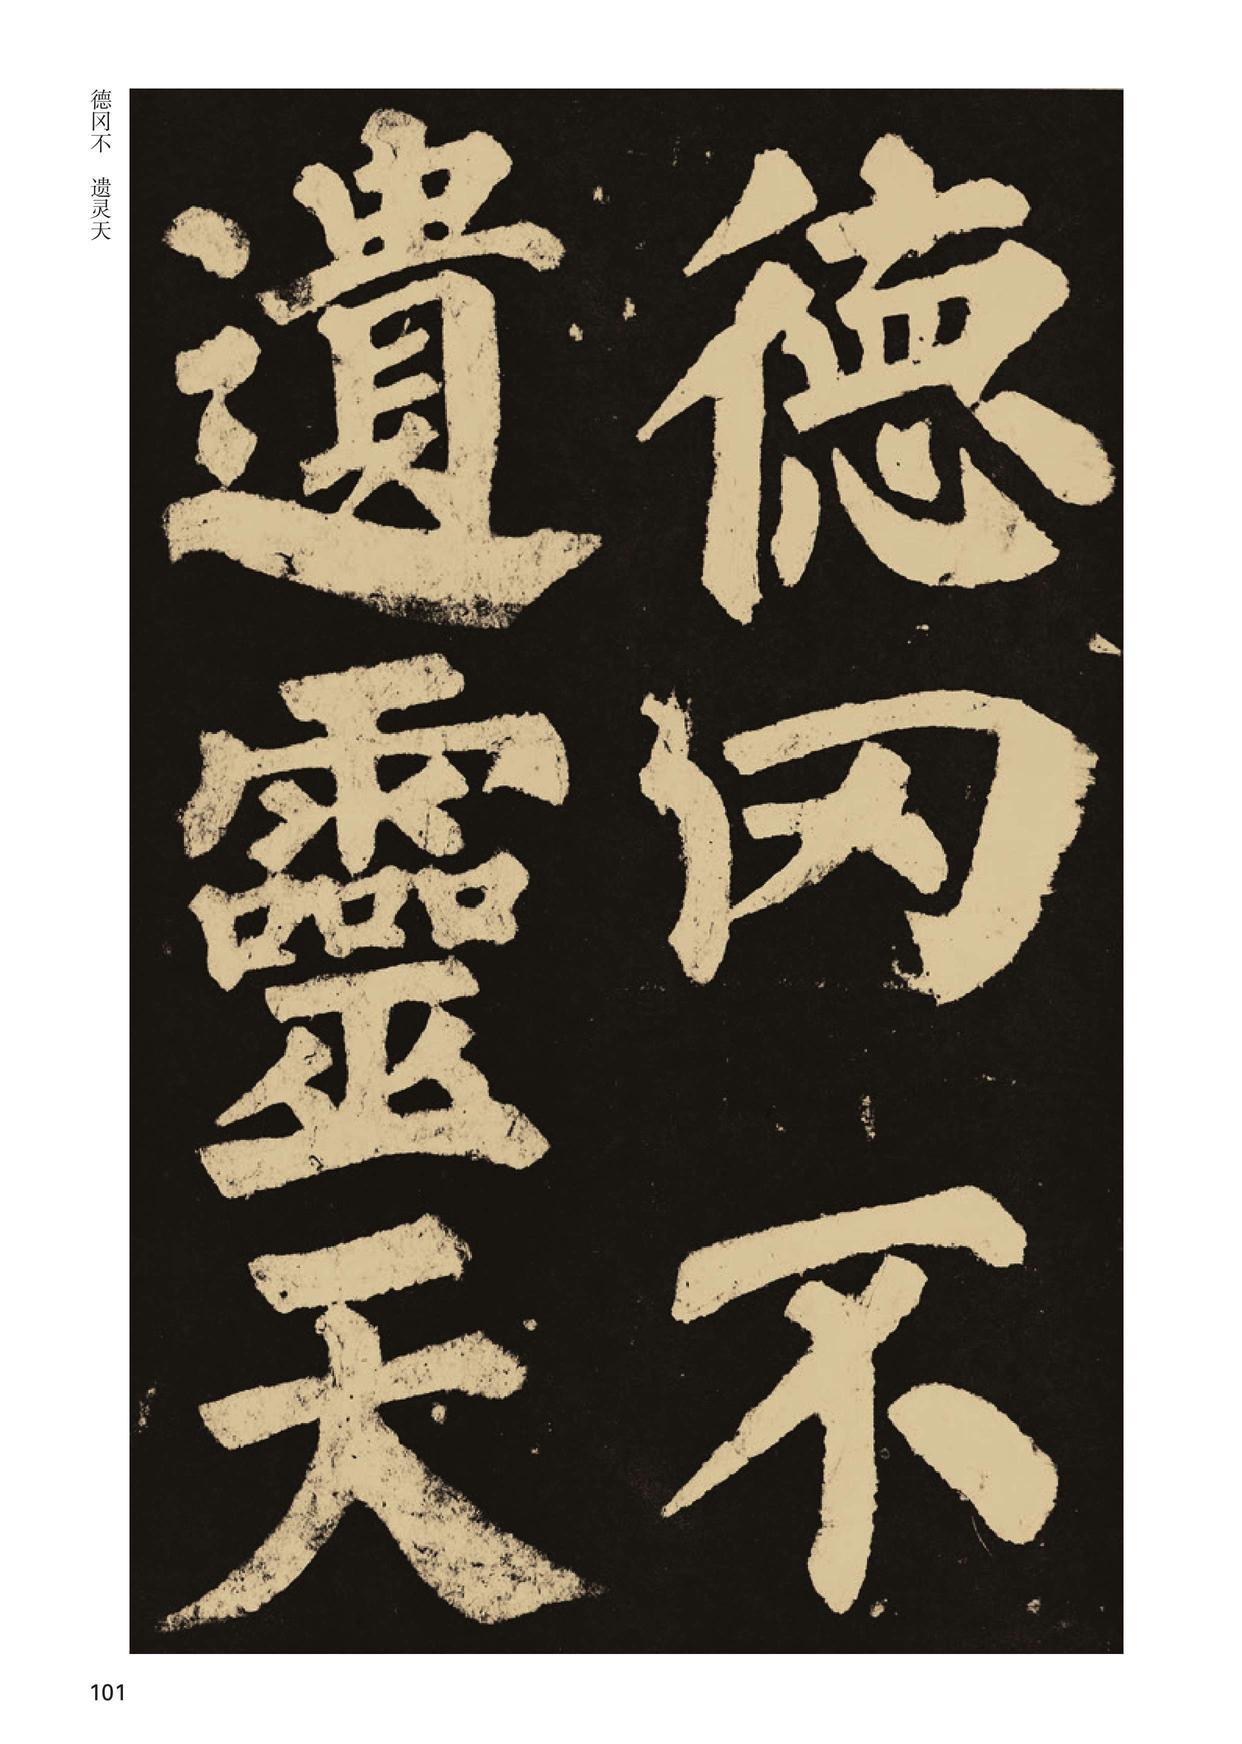 德冈不 遗灵天
德冈不
遺靈天
101